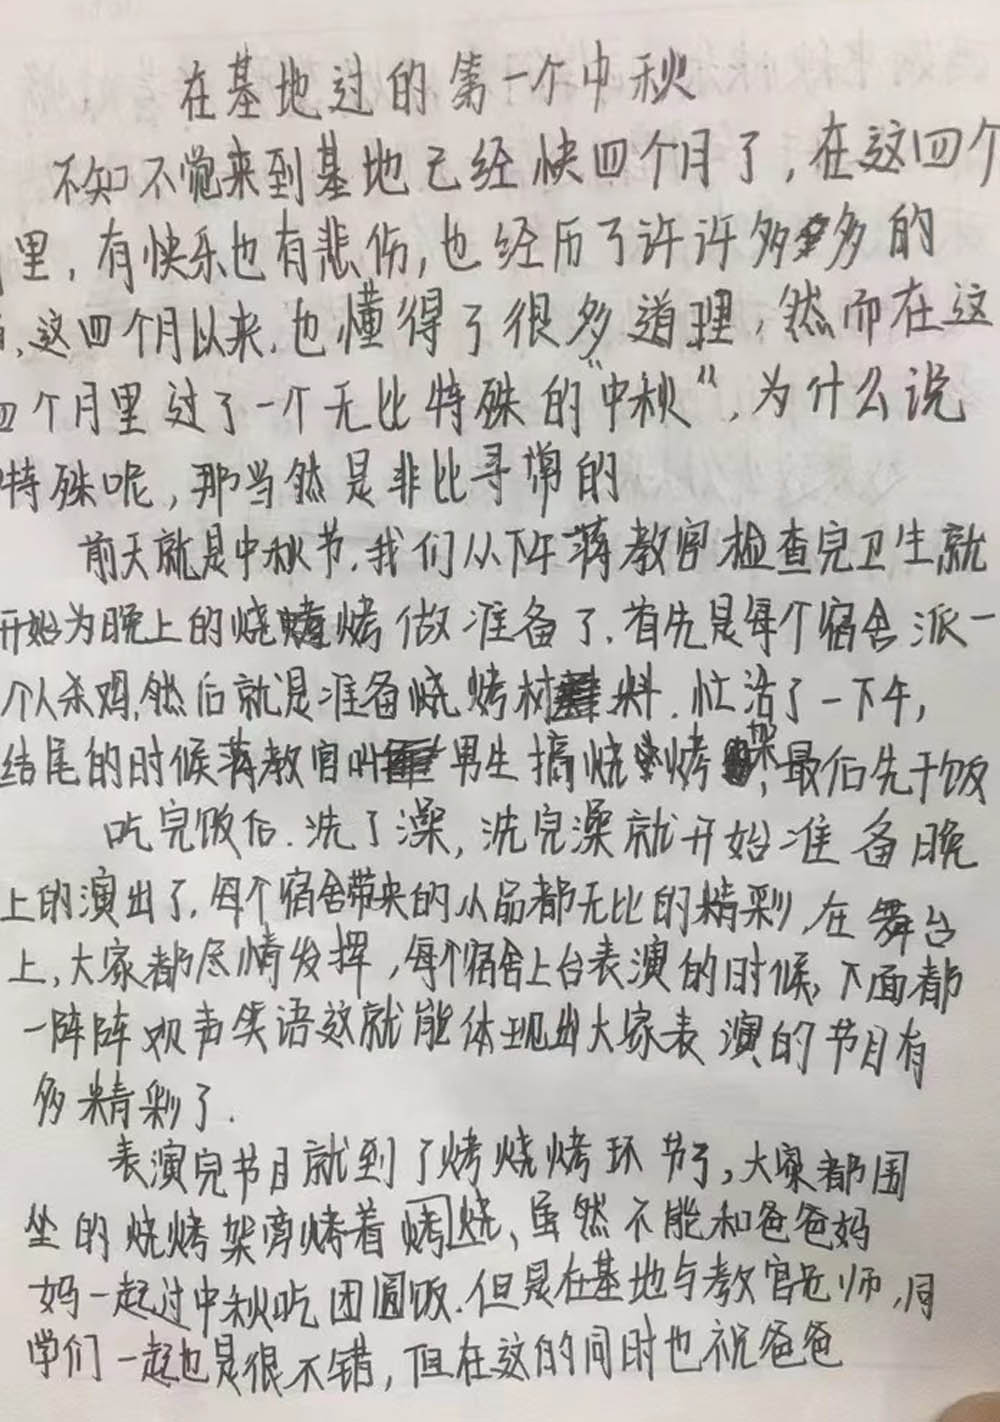 在基地过的第一个中秋
不知不觉来到基地已经快四个月了，在这四个
里，有快乐也有悲伤，也经历了许许多多的
，这四个月以来，也懂得了很多道理，然而在这
四个月里过了一个无比特殊的“中秋”，为什么说
特殊呢，那当然是非比寻常的
前天就是中秋节，我们从下午蒋教官检查完卫生就
开始为晚上的烧烤做准备了，首先是每个宿舍派一
个人杀鸡，然后就是准备烧烤材料，忙活了一下午，
结尾的时候蒋教官叫男生搞烧烤架，最后先干饭
吃完饭后，洗了澡，洗完澡就开始准备晚
上的演出了，每个宿舍带来的从品都无比的精彩，在舞台
上，大家都尽情发挥，每个宿舍上台表演的时候，下面都
一阵阵欢声笑语这就能体现出大家表演的节目有
多精彩了．
表演完节目就到了烤烧烤环节了，大家都围
坐的烧烤架旁烤着烤烧，虽然不能和爸爸妈
妈一起过中秋吃团圆饭．但是在基地与教官老师，同
学们一起也是很不错，但在这的同时也祝爸爸